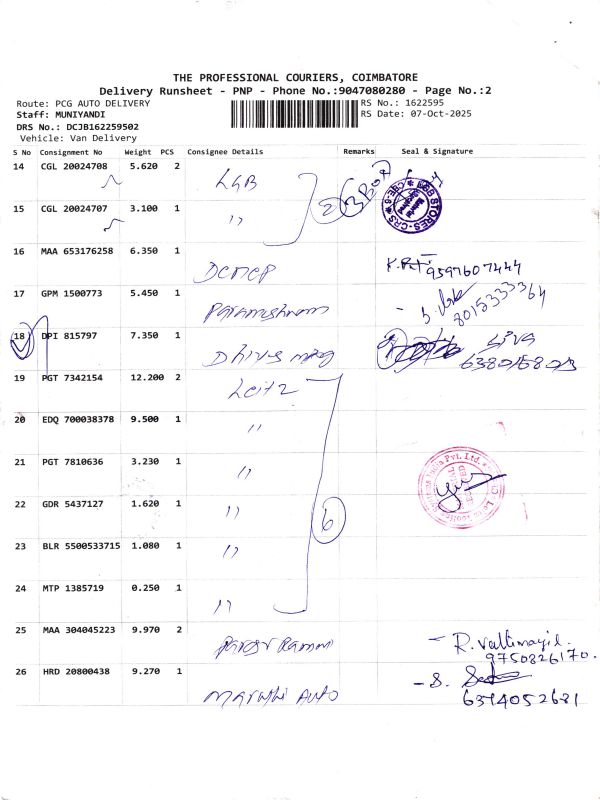 THE PROFESSIONAL COURIERS, COIMBATORE
Delivery Runsheet - PNP - Phone No.:9047080280 - Page No.:2
Route: PCG AUTO DELIVERY
RS No.: 1622595
Staff: MUNIYANDI
RS Date: 07-Oct-2025
DRS No.: DCJB162259502
Vehicle: Van Delivery
S No Consignment No Weight PCS Consignee Details Remarks Seal & Signature
14 CGL 20024708 5.620 2 LGB
15 CGL 20024707 3.100 1 "
2
STORES-CRS
CBE-6
16 MAA 653176258 6.350 1 9597607444
17 GPM 1500773 5.450 1 8015333364
18 DPI 815797 7.350 1 Dhiva mag SIVA
19 PGT 7342154 12.200 2 Leitz
20 EDQ 700038378 9.500 1 "
21 PGT 7810636 3.230 1 "
22 GDR 5437127 1.620 1 "
6
23 BLR 5500533715 1.080 1 "
24 MTP 1385719 0.250 1 "
25 MAA 304045223 9.970 2 R. Vallimayil.
9750826170.
26 HRD 20800438 9.270 1 MARUTHI AUTO - S.
6374052681